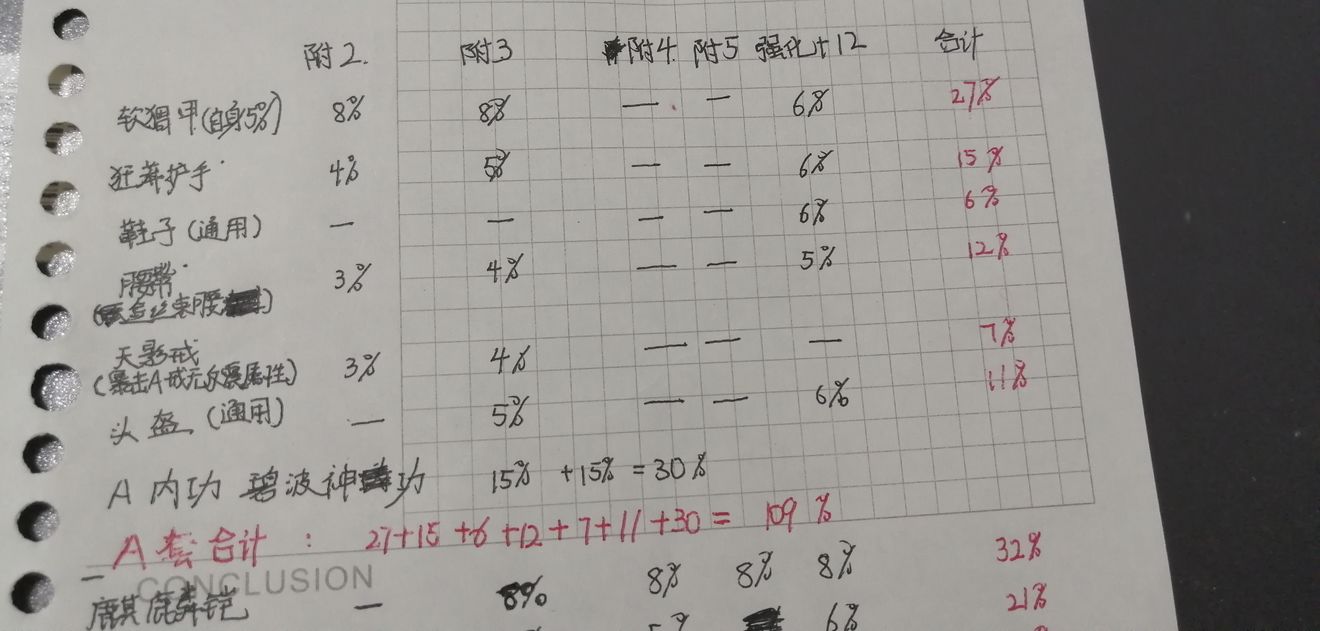 附2. 附3 附4. 附5 强化+12 合计
软猬甲(自身5%) 8% 8% — — 6% 27%
狂莽护手 4% 5% — — 6% 15%
鞋子(通用) — — — — 6% 6%
腰带 3% 4% — — 5% 12%
束腰
天影戒 3% 4% — — — 7%
(暴击A戒无反震属性)
头盔(通用) — 5% — — 6% 11%
A 内功 碧波神功 15% +15% = 30%
A套合计 : 27+15+6+12+7+11+30= 109 %
CONCLUSION
麒麟铠 — 8% 8% 8% 8% 32%
6% 21%